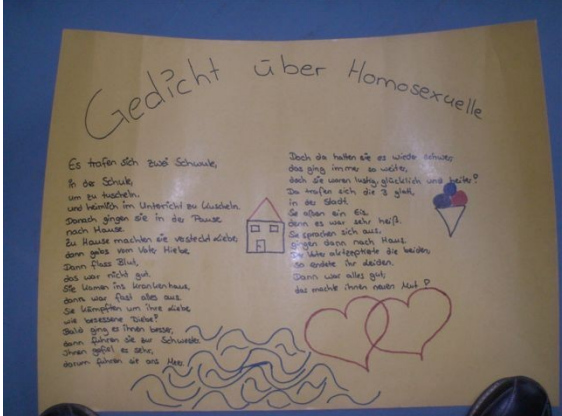 Gedicht über Homosexuelle
Es trafen sich zwei Schwule,
in der Schule,
um zu tuscheln.
und heimlich im Unterricht zu kuscheln.
Danach gingen sie in der Pause
nach Hause.
Zu Hause machten sie versteckt Liebe,
dann gabs vom Vater Hiebe.
Dann floss Blut,
das war nicht gut.
Sie kamen ins Krankenhaus,
dann war fast alles aus.
Sie kämpften um ihre Liebe
wie besessene Diebe!
Bald ging es ihnen besser,
dann fuhren sie zur Schwester.
Ihnen gefiel es sehr,
darum fuhren sie ans Meer.
Doch da hatten sie es wieder schwer,
das ging immer so weiter,
doch sie waren lustig, glücklich und heiter!
Da trafen sich die 3 glatt,
in der Stadt.
Sie aßen ein Eis,
denn es war sehr heiß.
Sie sprachen sich aus,
gingen dann nach Haus.
Der Vater akzeptierte die beiden,
so endete ihr Leiden.
Dann war alles gut,
das machte ihnen neuen Mut!